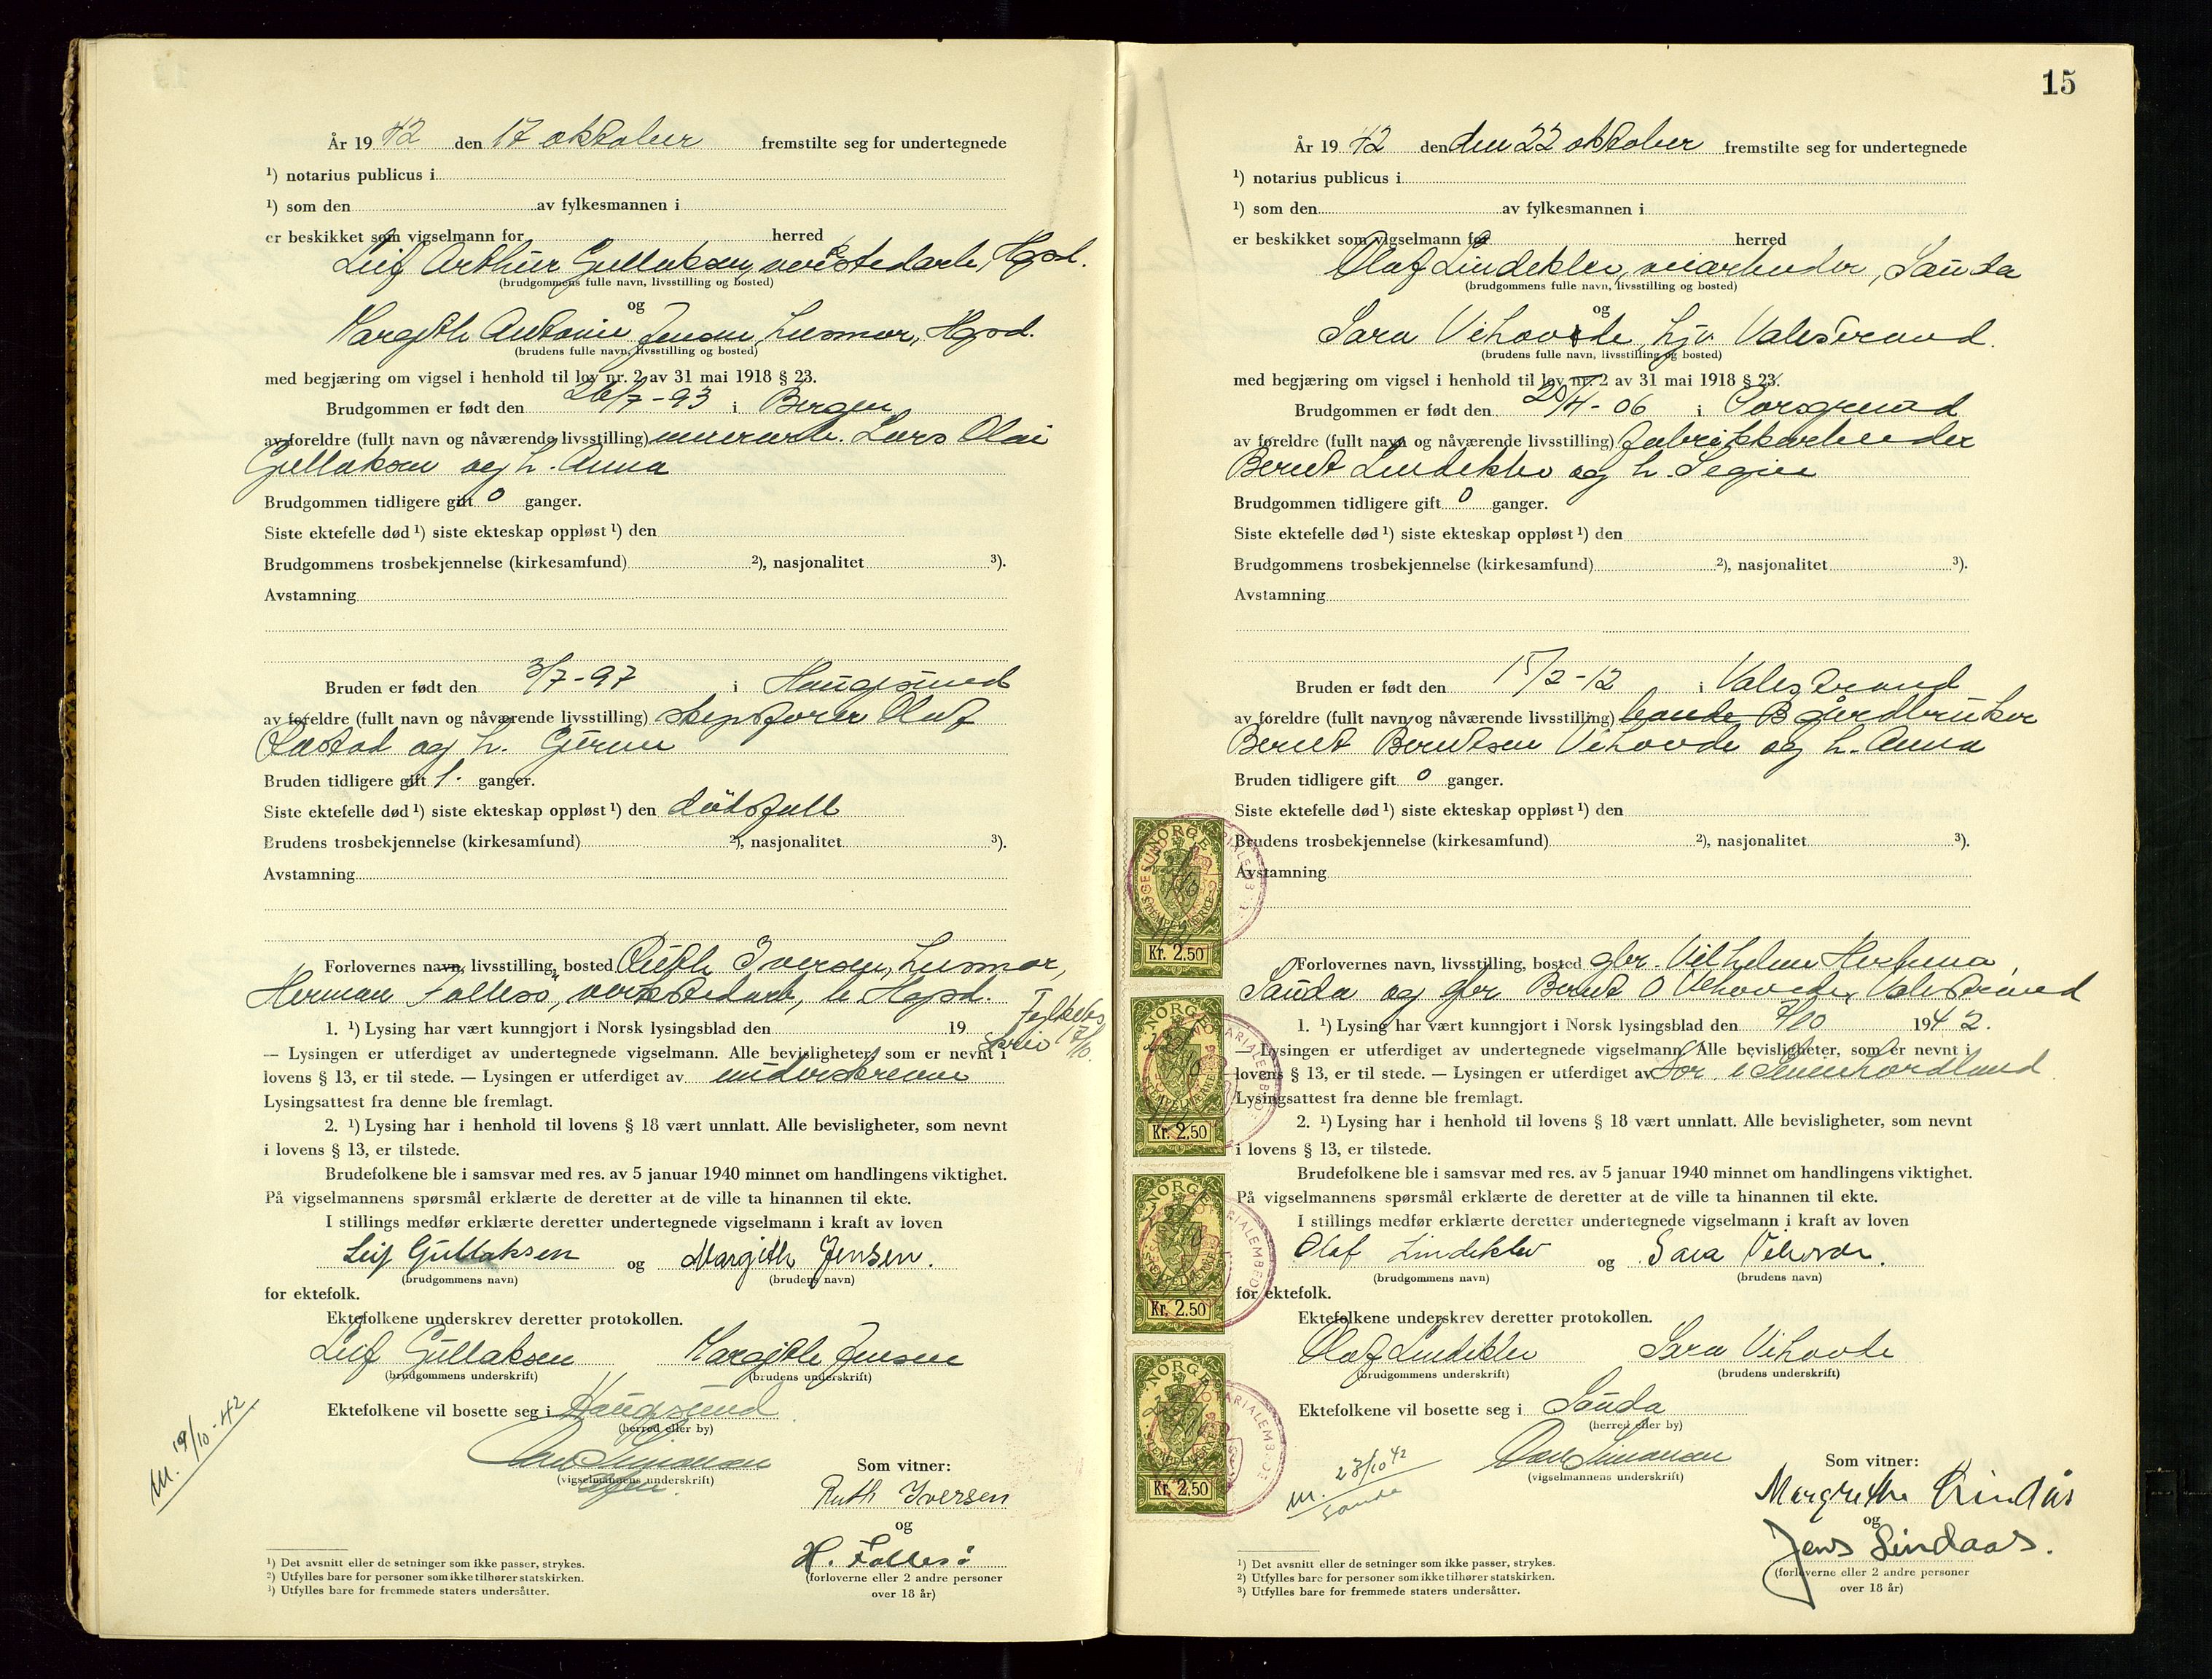 År 19 42 den 17 oktober fremstilte seg for undertegnede
¹) notarius publicus i
¹) som den av fylkesmannen i
er beskikket som vigselmann for herred
Leif Arthur Gullaksen, verkstedarb, Hgsd.
(brudgommens fulle navn, livsstilling og bosted)
og
Margith Antonie Jensen, husmor, Hgsd.
(brudens fulle navn, livsstilling og bosted)
med begjæring om vigsel i henhold til lov nr. 2 av 31 mai 1918 § 23.
Brudgommen er født den 26/7-93 i Bergen
av foreldre (fullt navn og nåværende livsstilling) murerarb. Lars Olai
Gullaksen og h. Anna
Brudgommen tidligere gift 0 ganger.
Siste ektefelle død ¹) siste ekteskap oppløst ¹) den
Brudgommens trosbekjennelse (kirkesamfund) ²), nasjonalitet ³).
Avstamning
Bruden er født den 3/7-97 i Haugesund
av foreldre (fullt navn og nåværende livsstilling) skipsfører Oluf
og h. Gurine
Bruden tidligere gift 1. ganger.
Siste ektefelle død ¹) siste ekteskap oppløst ¹) den dødsfall
Brudens trosbekjennelse (kirkesamfund) ²), nasjonalitet ³).
Avstamning
Forlovernes navn, livsstilling, bosted Ruth Iversen, husmor,
Herman Follesø, verkstedarb, b Hgsd.
1. ¹) Lysing har vært kunngjort i Norsk lysingsblad den 19
Fylkets
skriv 17/10.
— Lysingen er utferdiget av undertegnede vigselmann. Alle bevisligheter, som er nevnt i
lovens § 13, er til stede. — Lysingen er utferdiget av
Lysingsattest fra denne ble fremlagt.
2. ¹) Lysing har i henhold til lovens § 18 vært unnlatt. Alle bevisligheter, som nevnt
i lovens § 13, er tilstede.
Brudefolkene ble i samsvar med res. av 5 januar 1940 minnet om handlingens viktighet.
På vigselmannens spørsmål erklærte de deretter at de ville ta hinannen til ekte.
I stillings medfør erklærte deretter undertegnede vigselmann i kraft av loven
Leif Gullaksen og Margith Jensen.
(brudgommens navn) (brudens navn)
for ektefolk.
Ektefolkene underskrev deretter protokollen.
Leif Gullaksen Margith Jensen
(brudgommens underskrift) (brudens underskrift)
Ektefolkene vil bosette seg i Haugesund
(herred eller by)
m. 19/10-42
Carl Simonsen
(vigselmannens underskrift)
Som vitner:
Ruth Iversen
og
H. Follesø
(forloverne eller 2 andre personer
over 18 år)
¹) Det avsnitt eller de setninger som ikke passer, strykes.
²) Utfylles bare for personer som ikke tilhører statskirken.
³) Utfylles bare for fremmede staters undersåtter.
15
År 19 42 den den 22 oktober fremstilte seg for undertegnede
¹) notarius publicus i
¹) som den av fylkesmannen i
er beskikket som vigselmann for herred
Olaf Lindeklev, veiarbeider, Sauda
(brudgommens fulle navn, livsstilling og bosted)
og
Sara Vihovde, hjv. Valestrand.
(brudens fulle navn, livsstilling og bosted)
med begjæring om vigsel i henhold til lov nr. 2 av 31 mai 1918 § 23.
Brudgommen er født den 25/4-06 i Porsgrund
av foreldre (fullt navn og nåværende livsstilling) fabrikkarbeider
Berut Lindeklev og h. Segine
Brudgommen tidligere gift 0 ganger.
Siste ektefelle død ¹) siste ekteskap oppløst ¹) den
Brudgommens trosbekjennelse (kirkesamfund) ²), nasjonalitet ³).
Avstamning
Bruden er født den 15/2-12 i Valestrand
av foreldre (fullt navn og nåværende livsstilling) bonde B gårdbruker
Berut Berutsen Vihovde og h. Anna
Bruden tidligere gift 0 ganger.
Siste ektefelle død ¹) siste ekteskap oppløst ¹) den
Brudens trosbekjennelse (kirkesamfund) ²), nasjonalitet ³).
Avstamning
Forlovernes navn, livsstilling, bosted gbr. Vilhelm
Sauda og gbr Berut O Vihovde, Valestrand
1. ¹) Lysing har vært kunngjort i Norsk lysingsblad den 7/10 1942.
— Lysingen er utferdiget av undertegnede vigselmann. Alle bevisligheter, som er nevnt i
lovens § 13, er til stede. — Lysingen er utferdiget av Sor. i Sunnhordland
Lysingsattest fra denne ble fremlagt.
2. ¹) Lysing har i henhold til lovens § 18 vært unnlatt. Alle bevisligheter, som nevnt
i lovens § 13, er tilstede.
Brudefolkene ble i samsvar med res. av 5 januar 1940 minnet om handlingens viktighet.
På vigselmannens spørsmål erklærte de deretter at de ville ta hinannen til ekte.
I stillings medfør erklærte deretter undertegnede vigselmann i kraft av loven
Olaf Lindeklev og Sara Vihovde.
(brudgommens navn) (brudens navn)
for ektefolk.
Ektefolkene underskrev deretter protokollen.
Olaf Lindeklev Sara Vihovde
(brudgommens underskrift) (brudens underskrift)
Ektefolkene vil bosette seg i Sauda
(herred eller by)
m. 23/10 42
Sauda
Carl Simonsen
(vigselmannens underskrift)
Som vitner:
Margrethe Lindås
og
Jens Lindaas.
(forloverne eller 2 andre personer
over 18 år)
¹) Det avsnitt eller de setninger som ikke passer, strykes.
²) Utfylles bare for personer som ikke tilhører statskirken.
³) Utfylles bare for fremmede staters undersåtter.
NORGE
STEMPELMERKE
Kr. 2.50
NORGE
STEMPELMERKE
Kr. 2.50
NORGE
STEMPELMERKE
Kr. 2.50
NORGE
STEMPELMERKE
Kr. 2.50